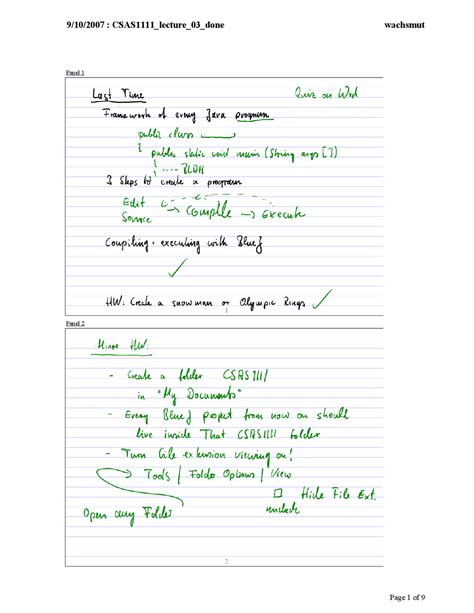 9/10/2007 : CSAS1111_lecture_03_done wachsmut
Panel 1
Last Time Quiz on Wed
Framework of every Java program
public class
{ public static void main (String args [])
{ .... BLAH
}
3 Steps to create a program
Edit Source → Compile → Execute
Compiling + executing with BlueJ
✓
HW: Create a snowman or Olympic Rings ✓
1
Panel 2
Minor HW:
- Create a folder CSAS1111
in "My Documents"
- Every BlueJ project from now on should
live inside that CSAS1111 folder
- Turn file extension viewing on!
→ Tools / Folder Options / View
☐ Hide File Ext.
Open any Folder uncheck
2
Page 1 of 9